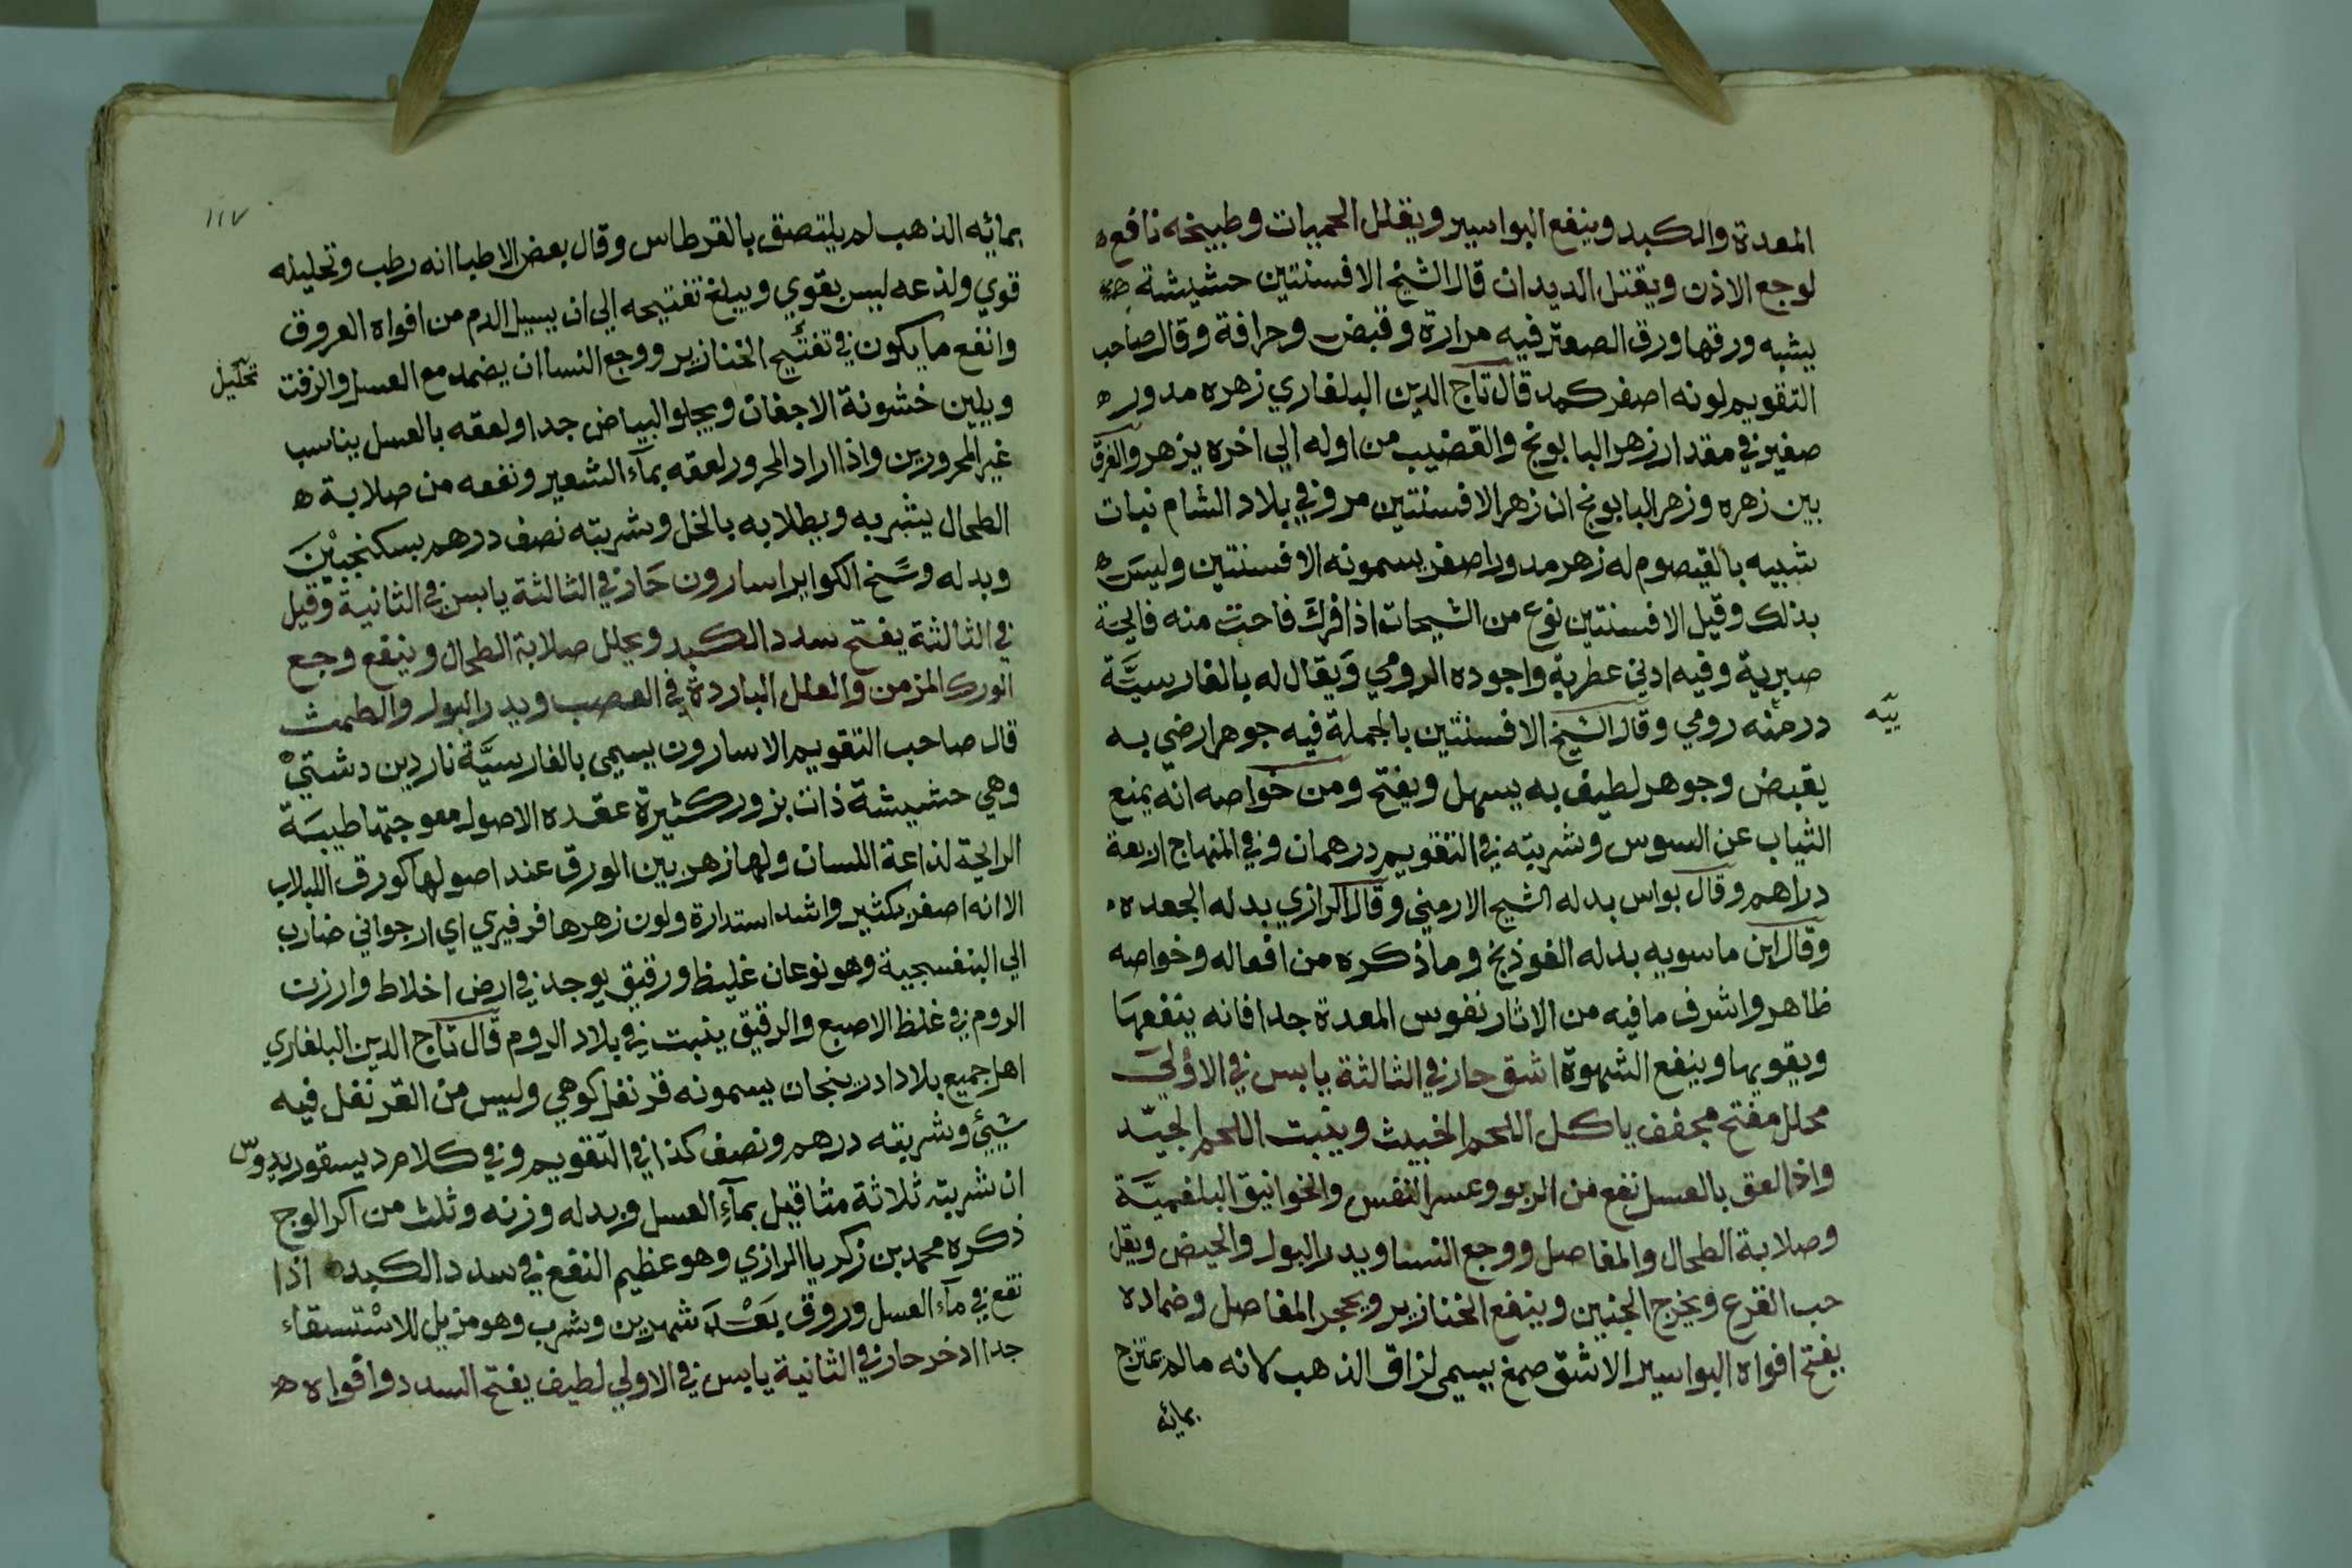 المعدة والكبد وينفع البواسير ويقلل الحميات وطبيخه نافع ه
لوجع الاذن ويقتل الديدان قال الشيخ الافسنتين حشيشة
يشبه ورقها ورق الصعتر فيه مرارة وقبض وحرافة وقال صاحب
التقويم لونه اصفر كمد قال تاج الدين البلغاري زهره مدور ه
صغير في مقدار زهر البابونج والقضيب من اوله الي اخره يزهر والفرق
بين زهره وزهر البابونج ان زهر الافسنتين مر وفي بلاد الشام نبات
شبيه بالقيصوم له زهر مدور اصفر يسمونه الافسنتين وليس ه
بذلك وقيل الافسنتين نوع من الشيحات اذا فرك فاحت منه فايحة
صبرية وفيه ادني عطرية واجوده الرومي ويقال له بالفارسيَّة
درمنه رومي وقال الشيخ الافسنتين بالجملة فيه جوهر ارضي به
يقبض وجوهر لطيف به يسهل ويفتح ومن خواصه انه يمنع
الثياب عن السوس وشربته في التقويم درهمان وفي المنهاج اربعة
دراهم وقال بولس بدله الشيح الارمني وقال الرازي بدله الجعده
وقال ابن ماسويه بدله الفوذنج وما ذكره من افعاله وخواصه
ظاهر واشرف ما فيه من الاثار نفوس المعدة جدا فانه ينفعها
ويقويها وينفع الشهوة اشق حار في الثالثة يابس في الاولي
محلل مفتح مجفف ياكل اللحم الخبيث وينبت اللحم الجيّد
واذا لعق بالعسل نفع من الربو وعسر النفس والخوانيق البلغميَّة
وصلابة الطحال والمفاصل ووجع النسا ويدر البول والحيض ويقل
حب القرع ويخرج الجنين وينفع الخنازير وتحجر المفاصل وضماده
يفتح افواه البواسير الاشق صمغ يسمي لزاق الذهب لانه ما لم يمتزج
بمائه
يَّه
١١٧
بمائه الذهب لم يلتصق بالقرطاس وقال بعض الاطبا انه رطب وتحليله
قوي ولذعه ليس بقوي ويبلغ تفتيحه الي ان يسيل الدم من افواه العروق
وانفع ما يكون في تفتيح الخنازير ووجع النسا ان يضمد مع العسل والزفت
تحليل
ويلين خشونة الاجفان ويجلو البياض جدا ولعقه بالعسل يناسب
غير المحرورين واذا اراد المحرور لعقه بمآء الشعير ونفعه من صلابة ه
الطحال يشربه ويطلا به بالخل وشربته نصف درهم بسكنجبين
وبدله وسَخ الكواير اسارون حَار في الثالثة يابس في الثانية وقيل
في الثالثة يفتح سدد الكبد ويحلل صلابة الطحال وينفع وجع
الورك المزمن والعلل الباردة في العصب ويدر البول والطمث
قال صاحب التقويم الاسارون يسمي بالفارسيَّة ناردين دشتي
وهي حشيشة ذات بزور كثيرة عقده الاصول معوجتها طيبَة
الرايحة لذاعة اللسان ولها زهر بين الورق عند اصولها كورق اللبلاب
الا انه اصغر بكثير واشد استدارة ولون زهرها فرفيري اي ارجواني ضارب
الي البنفسجية وهو نوعان غليظ ورقيق يوجد في ارض اخلاط وارزن
الروم في غلظ الاصبع والرقيق ينبت في بلاد الروم قال تاج الدين البلغاري
اهل جميع بلاد ادربنجان يسمونه قرنفل كوهي وليس من القرنفل فيه
شيئ وشربته درهم ونصف كذا في التقويم وفي كلام ديسقوريدوس
ان شربته ثلاثة مثاقيل بمآءِ العسل وبدله وزنه وثلث من اكر الوج
ذكره محمد بن زكريا الرازي وهو عظيم النفع في سدد الكبد ه اذا
نقع في مآء العسل وروق بَعْدَ شهرين وشرب وهو مزيل للاسْتسقاء
جدا ادخر حار في الثانية يابس في الاولي لطيف يفتح السدد وافواه ه